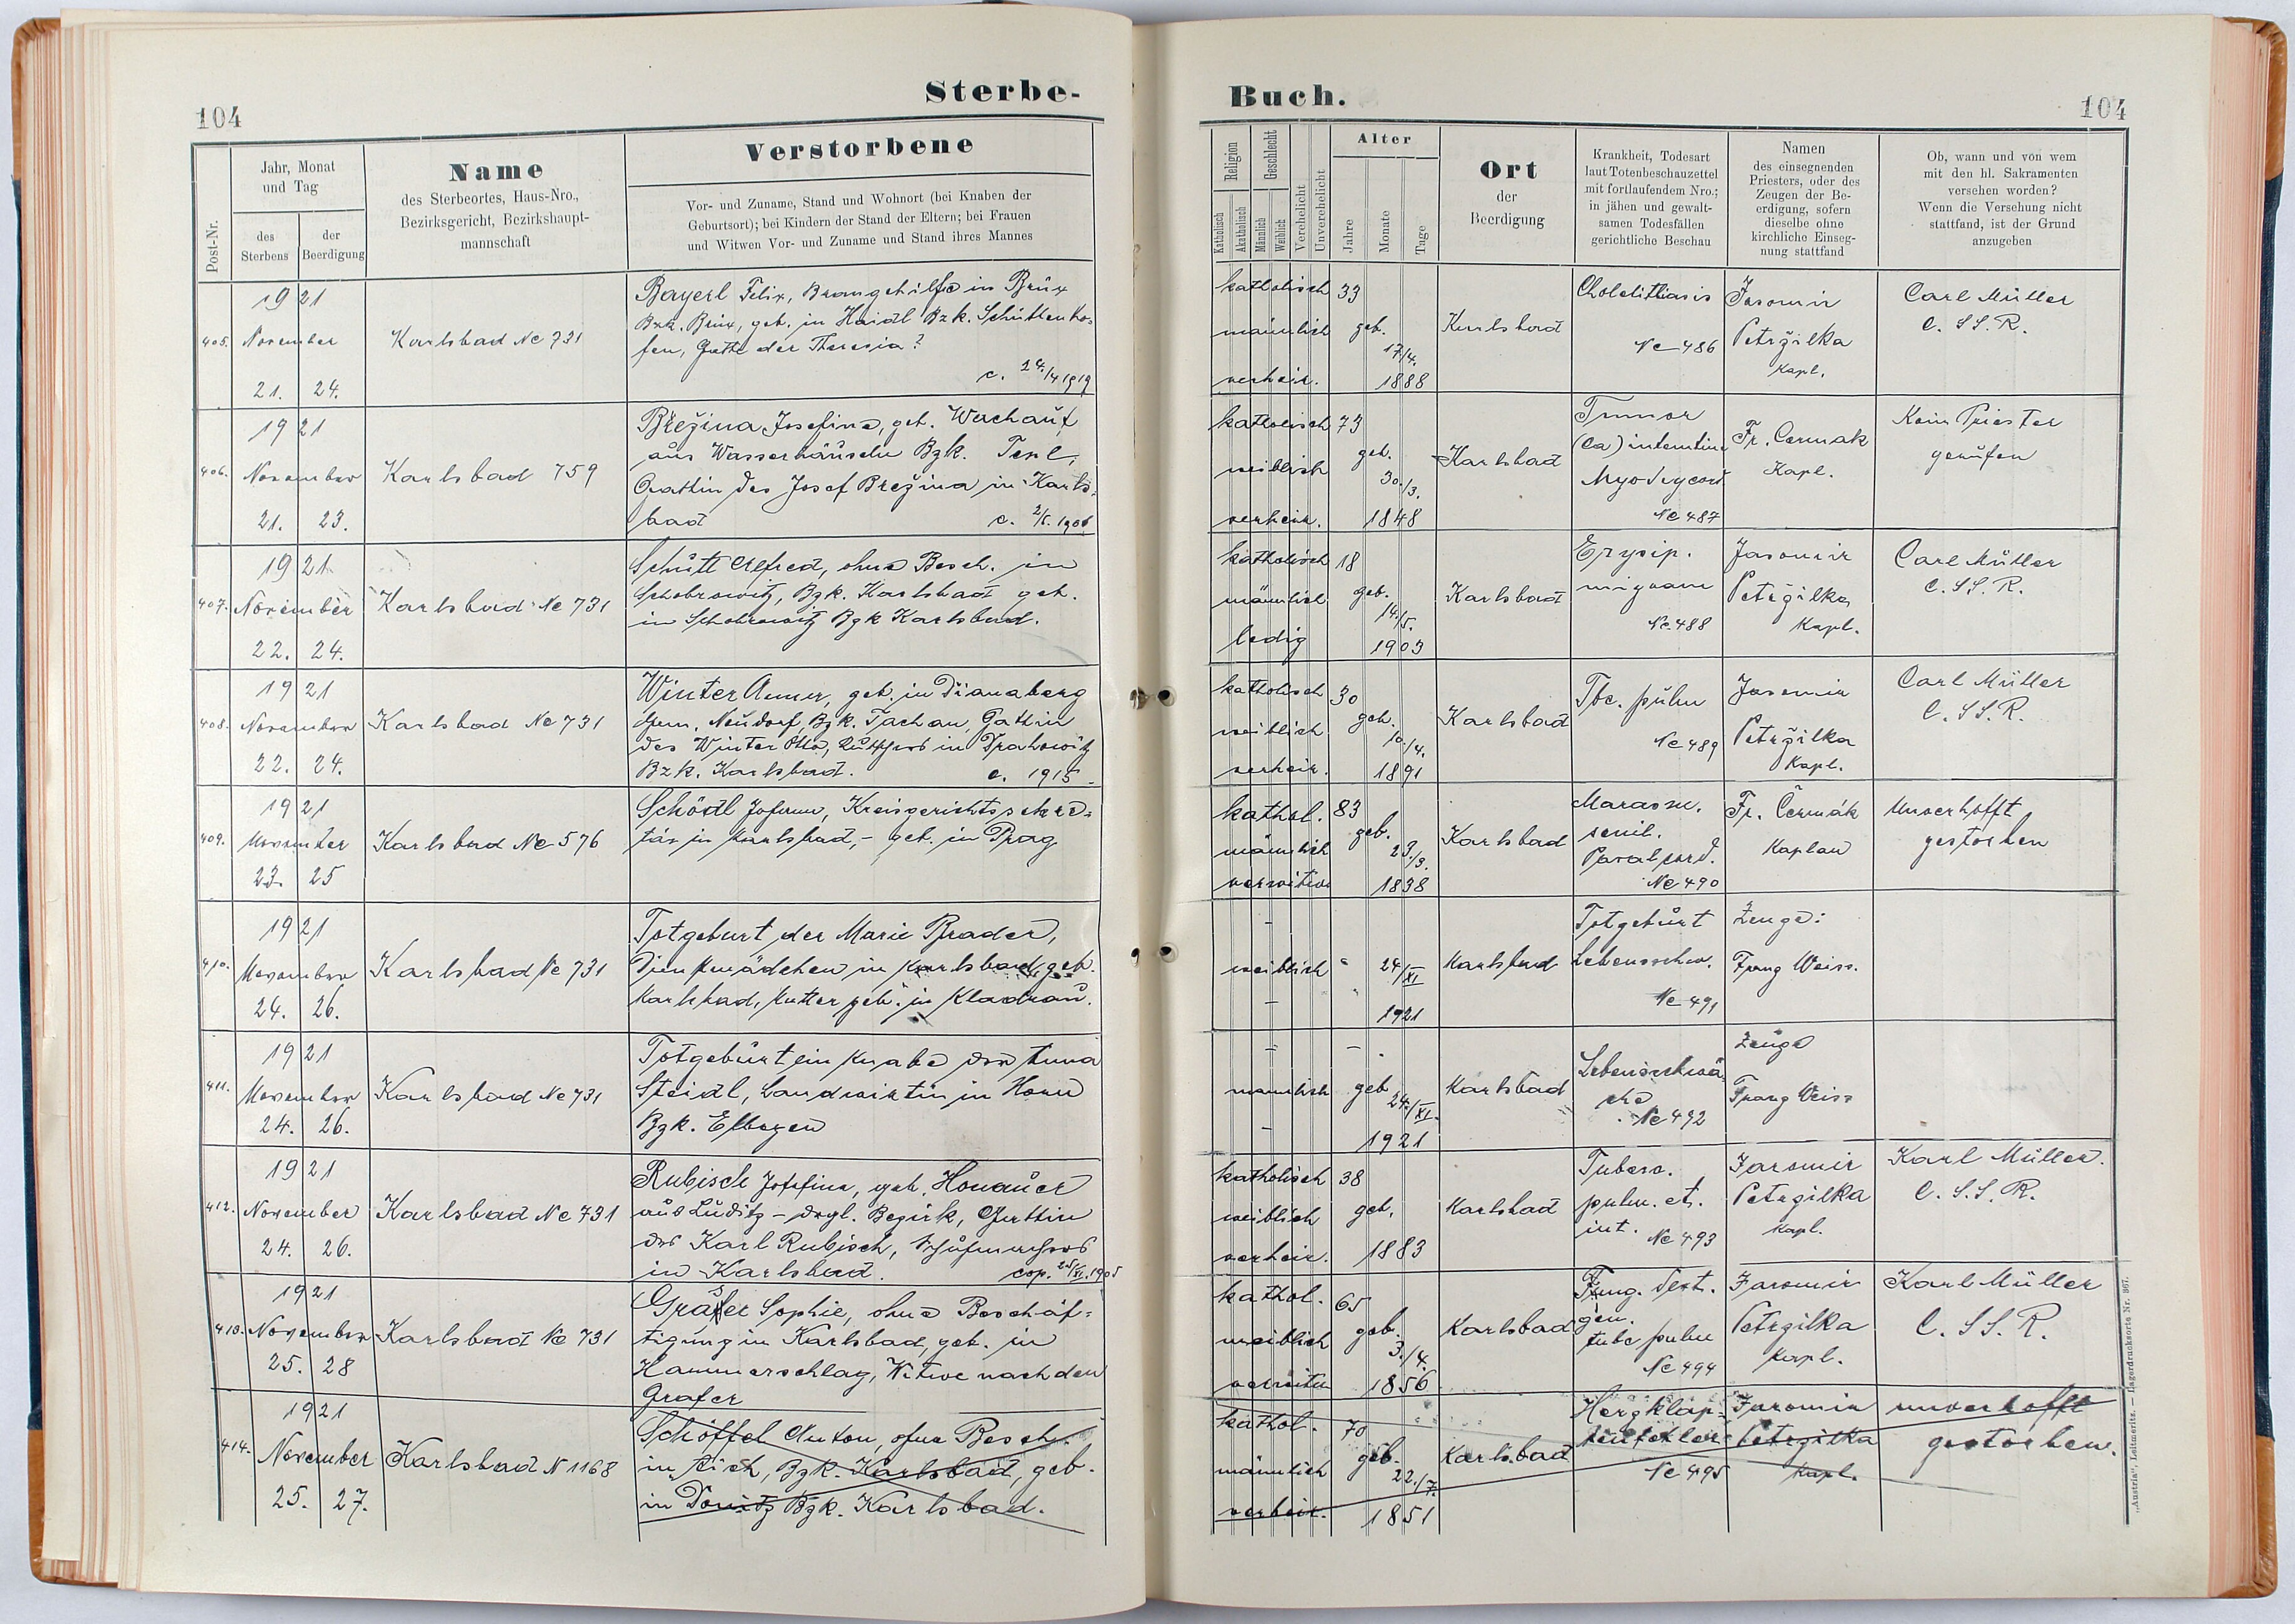 104
Sterbe-
Post-Nr.
Jahr, Monat
und Tag
des
Sterbens
der
Beerdigung
Name
des Sterbeortes, Haus-Nro.,
Bezirksgericht, Bezirkshaupt-
mannschaft
Verstorbene
Vor- und Zuname, Stand und Wohnort (bei Knaben der
Geburtsort); bei Kindern der Stand der Eltern; bei Frauen
und Witwen Vor- und Zuname und Stand ihres Mannes
405.
1921
November
21. 24.
Karlsbad No 731
Bayerl Felix, Braugehilfe in Brüx
Bzk. Brüx, geb. in Haidl Bzk. Schüttenho-
fen, Gatte der Theresia ?
c. 24./4 1919
406.
1921
November
21. 23.
Karlsbad 759
Břežina Josefine, geb. Wachauf
aus Wasserhäuseln Bzk. Tepl,
Gattin des Josef Břežina in Karls-
bad c. 2/5. 1906
407.
1921
November
22. 24.
Karlsbad No 731
Schütt Alfred, ohne Besch. in
Schobrowitz, Bzk. Karlsbad geb.
in Schobrowitz Bzk Karlsbad.
408.
1921
November
22. 24.
Karlsbad No 731
Winter Anna, geb. in Dianaberg
Gem. Neudorf, Bzk. Tachau, Gattin
des Winter Otto, in Drahowitz
Bzk. Karlsbad. c. 1915
409.
1921
November
23. 25
Karlsbad No 576
Schödl Johann, Kreisgerichtssekre-
tär in Karlsbad, - geb. in Prag
410.
1921
November
24. 26.
Karlsbad No 731
Totgeburt der Marie Brader,
Dienstmädchen in Karlsbad, geb.
Karlsbad, Mutter geb. in Kladrau.
411.
1921
November
24. 26.
Karlsbad No 731
Totgeburt ein Knabe der Anna
Steidl, Landwirtin in Horn
Bzk. Elbogen
412.
1921
November
24. 26.
Karlsbad No 731
Rubisch Josefine, geb. Honauer
aus Luditz - dsgl. Bezirk, Gattin
des Karl Rubisch, Schuhmachers
in Karlsbad. cop. 25/XI. 1905
413.
1921
November
25. 28
Karlsbad No 731
Grafer Sophie, ohne Beschäf-
tigung in Karlsbad, geb. in
Hammerschlag, Witwe nach dem
Grafer
414.
1921
November
25. 27.
Karlsbad N 1168
Schöffel Anton, ohne Besch.
in Aich, Bzk. Karlsbad, geb.
in Donitz Bzk. Karlsbad.
Buch.
104
Religion
Katholisch
Akatholisch
Geschlecht
Männlich
Weiblich
Verehelicht
Unverehelicht
Alter
Jahre
Monate
Tage
Ort
der
Beerdigung
Krankheit, Todesart
laut Totenbeschauzettel
mit fortlaufendem Nro.;
in jähen und gewalt-
samen Todesfällen
gerichtliche Beschau
Namen
des einsegnenden
Priesters, oder des
Zeugen der Be-
erdigung, sofern
dieselbe ohne
kirchliche Einseg-
nung stattfand
Ob, wann und von wem
mit den hl. Sakramenten
versehen worden?
Wenn die Versehung nicht
stattfand, ist der Grund
anzugeben
katholisch 33
männlich geb.
17/4.
verheir. 1888
Karlsbad
Cholelithiasis
No 486
Jaromir
Petržilka
Kapl.
Carl Müller
C. SS. R.
katholisch 73
weiblich geb.
30./3.
verheir. 1848
Karlsbad
Tumor
(Ca) intestin
Myodegcord
No 487
Fr. Cermak
Kapl.
Kein Priester
gerufen
katholisch 18
männlich geb.
14/5.
ledig 1903
Karlsbad
Erysip.
migrans
No 488
Jaromir
Petržilka
Kapl.
Carl Müller
C. SS. R.
katholisch 30
weiblich geb.
10/4.
verheir. 1891
Karlsbad
Tbc. pulm
No 489
Jaromir
Petržilka
Kapl.
Carl Müller
C. SS. R.
kathol. 83
männlich geb.
23./3.
verwitw 1838
Karlsbad
Marasm.
senil.
Paral cord.
No 490
Fr. Čermák
Kaplan
Unverhofft
gestorben
-
weiblich 24/XI
- 1921
Karlsbad
Totgeburt
Lebensschw.
No 491
Zeuge:
Franz Weiss.
- -
männlich geb
24./XI.
- 1921
Karlsbad
Lebensschwä
che
No 492
Zeuge
Franz Weiss
katholisch 38
weiblich geb.
verheir. 1883
Karlsbad
Tuberc.
pulm. et.
int. No 493
Jaromir
Petržilka
Kapl.
Karl Müller.
C. S.S. R.
kathol. 65
weiblich geb.
3./4.
verwitw 1856
Karlsbad
gen.
tube pulm
No 494
Jaromir
Petržilka
Kapl.
Karl Müller
C. SS. R.
kathol. 70
männlich geb.
22./7.
verheir. 1851
Karlsbad
Herzklap-
penfehler
No 495
Jaromir
Petržilka
Kapl.
unverhofft
gestorben.
„Austria“, Leitmeritz. — Lagerdrucksorte Nr. 867.